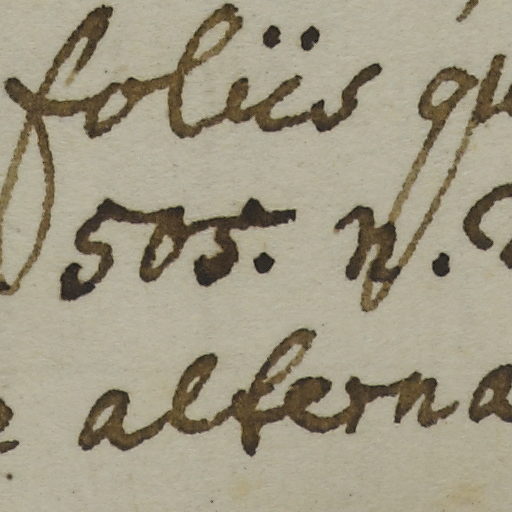 foliis qu
505. n.
alterna